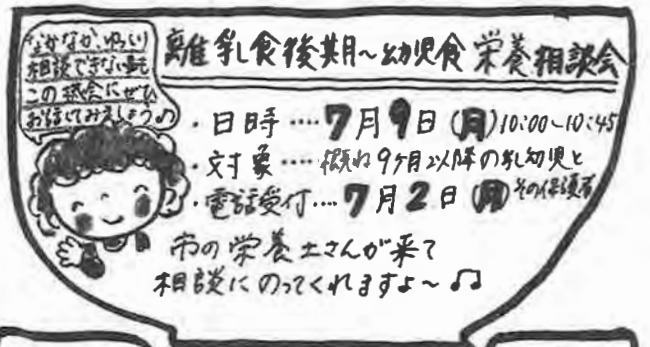 なかなかゆっくり
相談できない事も
この機会にぜひ
お話してみましょう♪
離乳食後期〜幼児食 栄養相談会
・日時‥‥7月9日(月)10:00〜10:45
・対象‥‥概ね9ヶ月以降の乳幼児と
その保護者
・電話受付‥‥7月2日(月)
市の栄養士さんが来て
相談にのってくれますよ〜♫